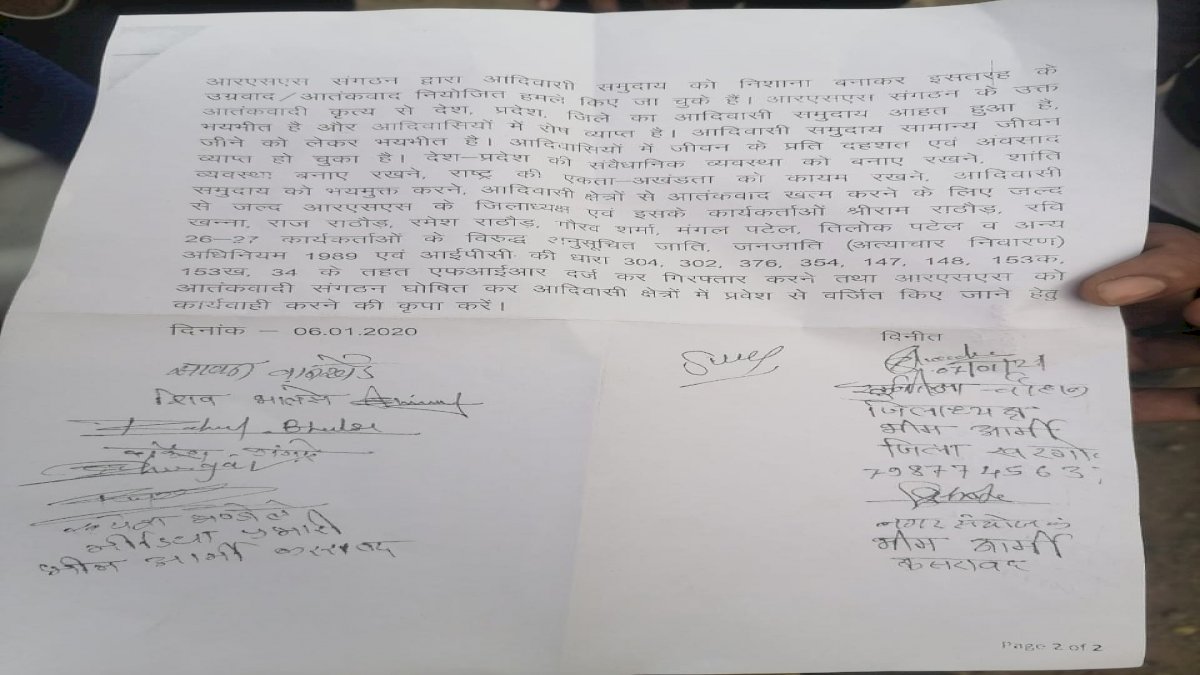 आरएसएस संगठन द्वारा आदिवासी समुदाय को निशाना बनाकर इसतरह के
उग्रवाद/आतंकवाद नियोजित हमले किए जा चुके हैं। आरएसएस संगठन के उक्त
आतंकवादी कृत्य से देश, प्रदेश, जिले का आदिवासी समुदाय आहत हुआ है,
भयभीत है और आदिवासियों में रोष व्याप्त है। आदिवासी समुदाय सामान्य जीवन
जीने को लेकर भयभीत है। आदिवासियों में जीवन के प्रति दहशत एवं अवसाद
व्याप्त हो चुका है। देश–प्रदेश की संवैधानिक व्यवस्था को बनाए रखने, शांति
व्यवस्था बनाए रखने, राष्ट्र की एकता–अखंडता को कायम रखने, आदिवासी
समुदाय को भयमुक्त करने, आदिवासी क्षेत्रों से आतंकवाद खत्म करने के लिए जल्द
से जल्द आरएसएस के जिलाध्यक्ष एवं इसके कार्यकर्ताओं श्रीराम राठौड़, रवि
खन्ना, राज राठौड़, रमेश राठौड़, गौरव शर्मा, मंगल पटेल, तिलोक पटेल व अन्य
26–27 कार्यकर्ताओं के विरुद्ध अनुसूचित जाति, जनजाति (अत्याचार निवारण)
अधिनियम 1989 एवं आईपीसी की धारा 304, 302, 376, 354, 147, 148, 153क,
153ख, 34 के तहत एफआईआर दर्ज कर गिरफ्तार करने तथा आरएसएस को
आतंकवादी संगठन घोषित कर आदिवासी क्षेत्रों में प्रवेश से वर्जित किए जाने हेतु
कार्यवाही करने की कृपा करें।
दिनांक – 06.01.2020
विनीत
जिलाध्यक्ष
भीम आर्मी
जिला
नगर संयोजक
भीम आर्मी
कसरावद
शिव भालसे
मीडिया प्रभारी
भीम आर्मी कसरावद
Page 2 of 2